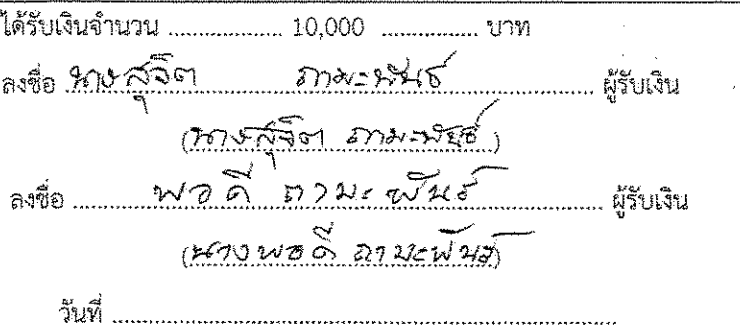 ได้รับเงินจำนวน ................. 10,000 .............. บาท
ลงชื่อ นางสุจิต ภามะพันธ์ ผู้รับเงิน
(นางสุจิต ภามะพันธ์)
ลงชื่อ พอดี ภามะพันธ์ ผู้รับเงิน
(นางพอดี ภามะพันธ์)
วันที่ ................................................................